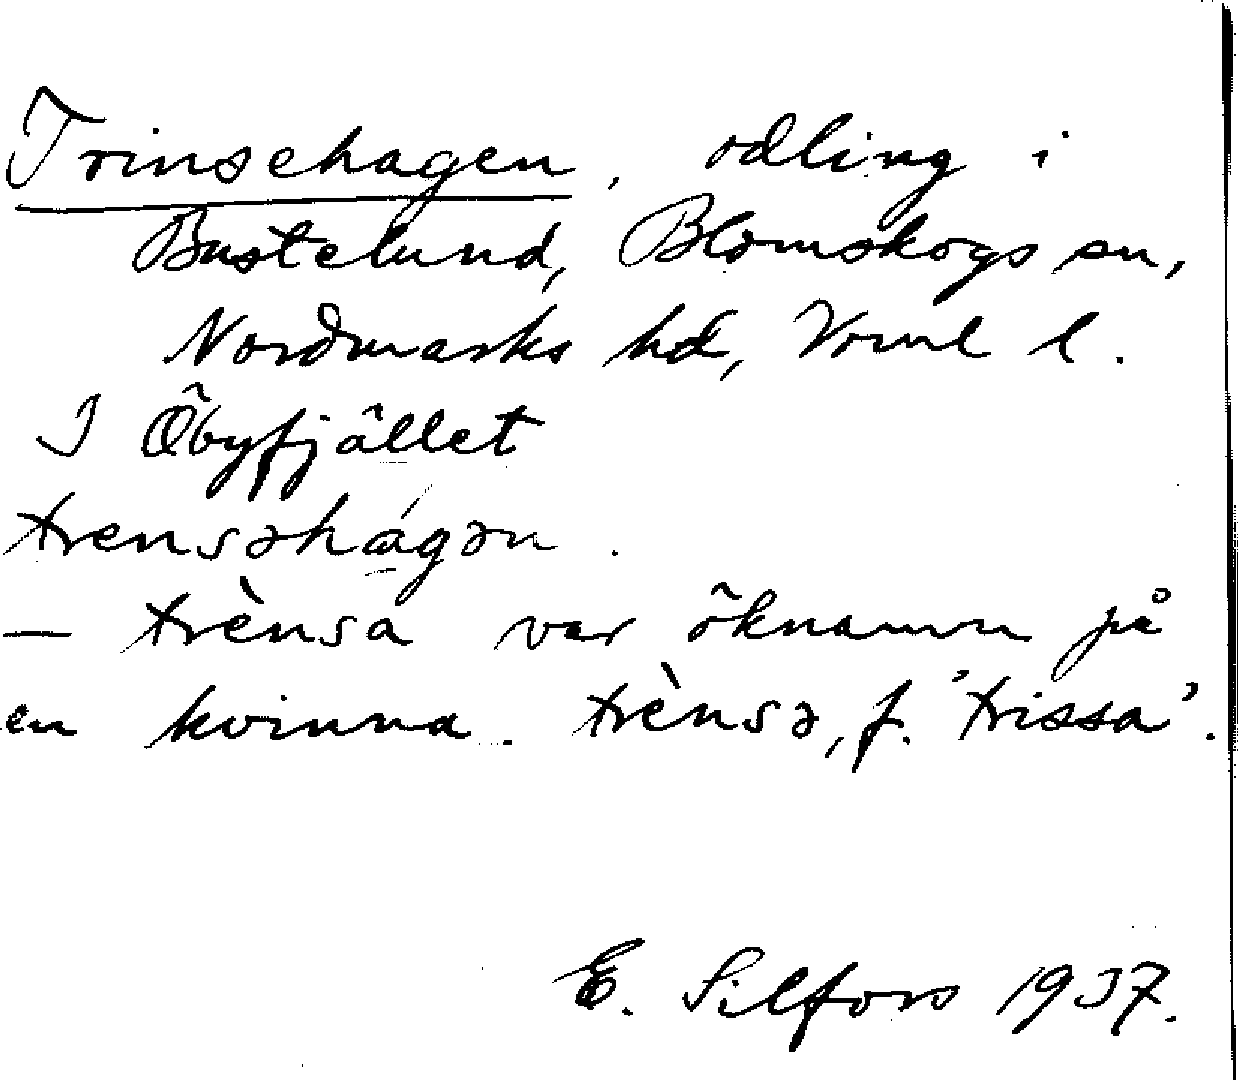 Trinsehagen, odling i
Bustelund, Blomskogs sn,
Nordmarks hd, Vrml l.
I Öbyfjället
trensəhágən.
— trènsa var öknamn på
en kvinna. trènsə, f. 'trissa'.
E. Silfors 1937.